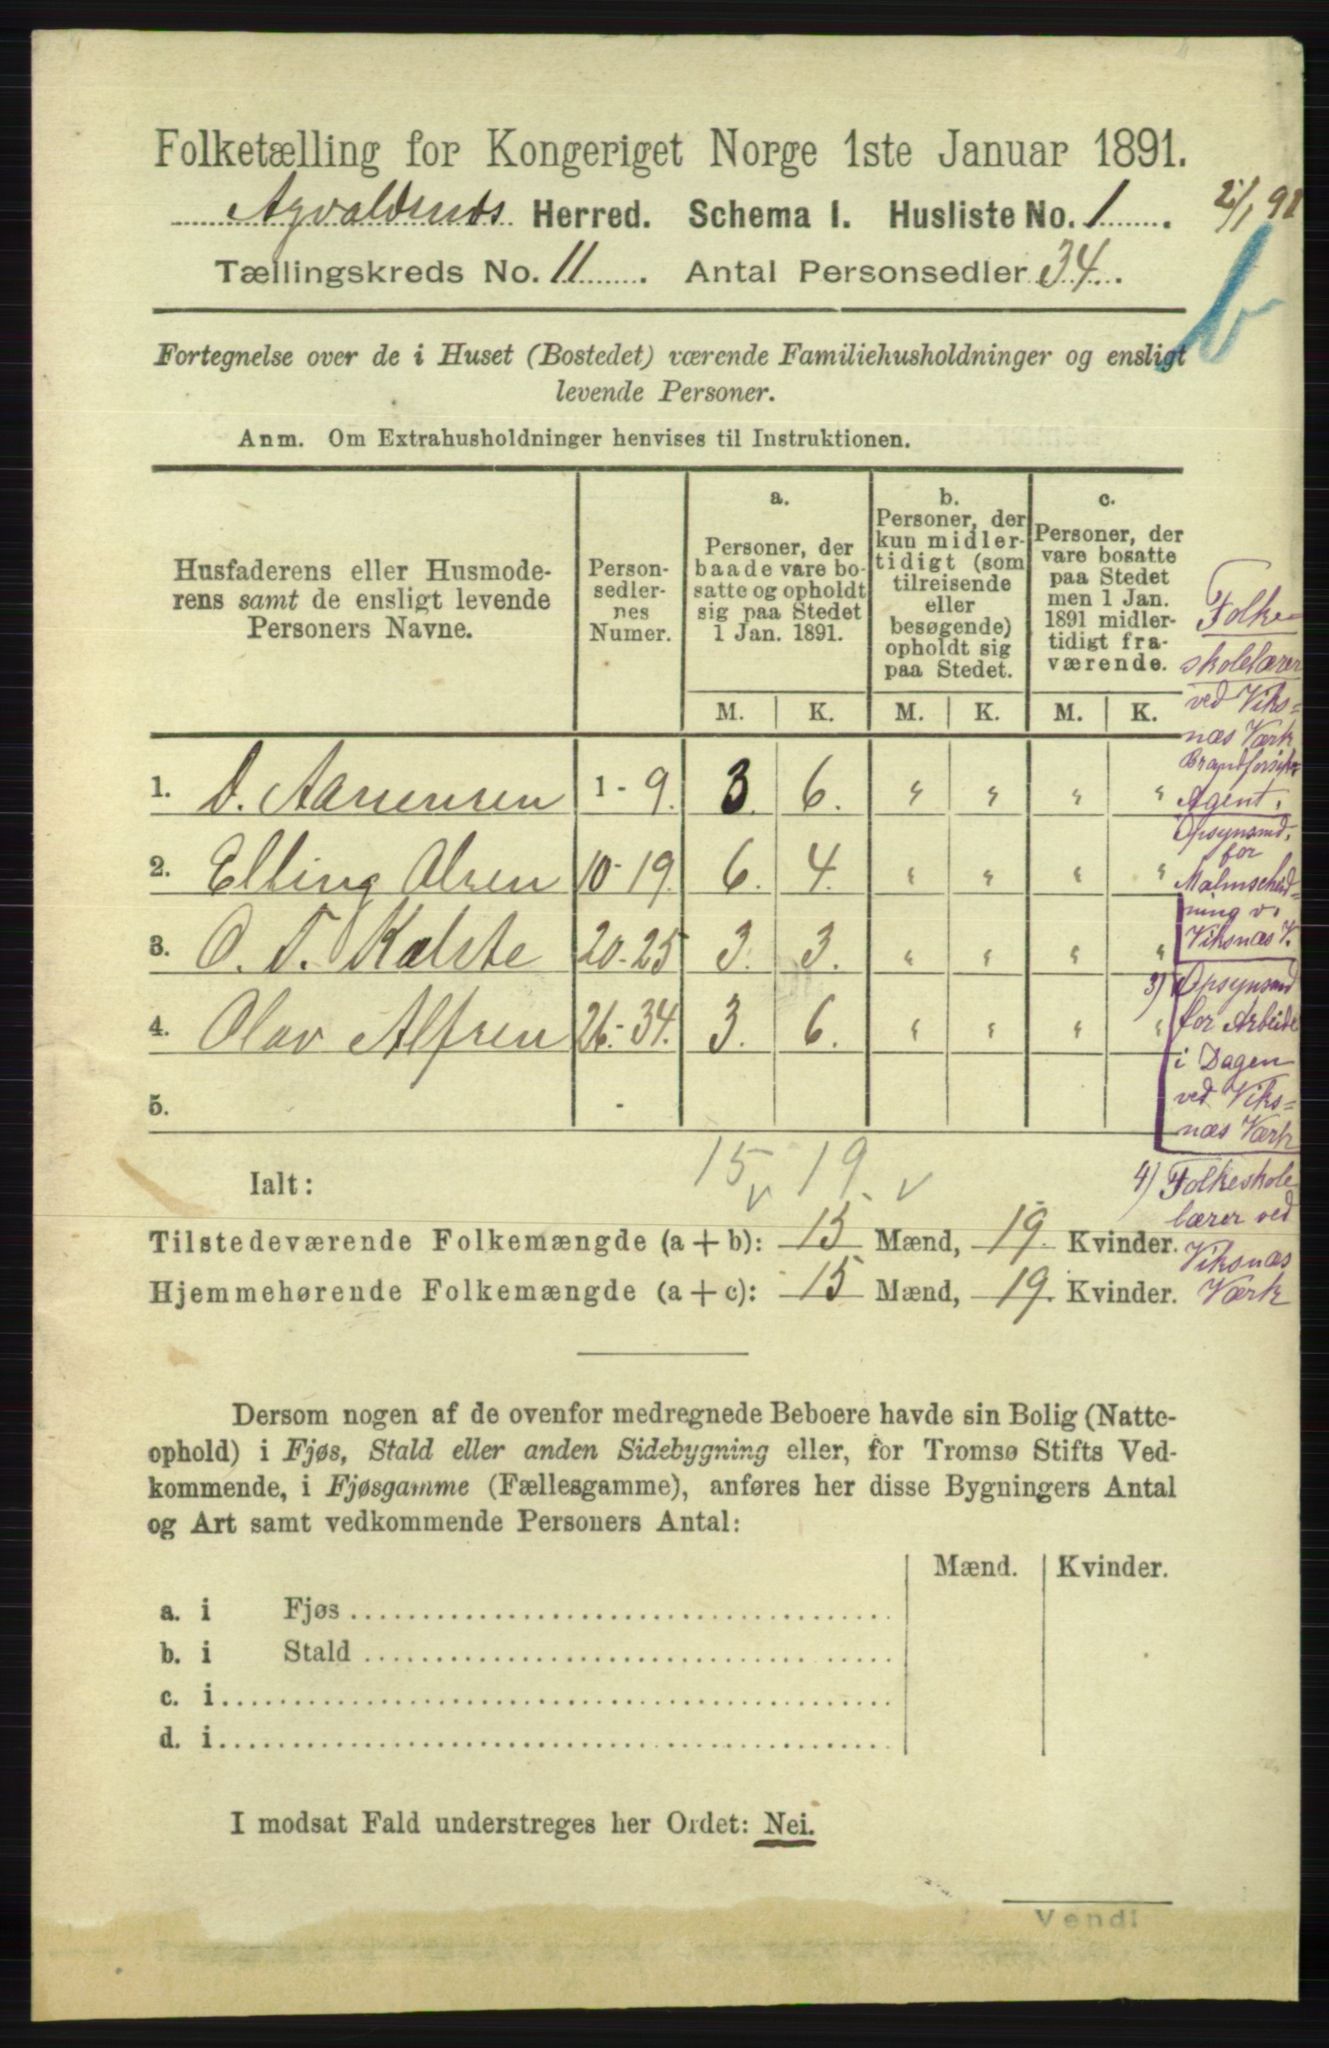 Folketælling for Kongeriget Norge 1ste Januar 1891.
Agvaldsnæs Herred. Schema I. Husliste No. 1. 2/1 91
Tællingskreds No. 11. Antal Personsedler 34.
b
Fortegnelse over de i Huset (Bostedet) værende Familiehusholdninger og ensligt
levende Personer.
Anm. Om Extrahusholdninger henvises til Instruktionen.
Husfaderens eller Husmode-
rens samt de ensligt levende
Personers Navne.
Person-
sedler-
nes
Numer.
a.
Personer, der
baade vare bo-
satte og opholdt
sig paa Stedet
1 Jan. 1891.
b.
Personer, der
kun midler-
tidigt (som
tilreisende
eller
besøgende)
opholdt sig
paa Stedet.
c.
Personer, der
vare bosatte
paa Stedet
men 1 Jan.
1891 midler-
tidigt fra-
værende.
M. K. M. K. M. K.
1. D. Aanensen 1-9. 3. 6. " " " "
2. Elling Olsen 10-19. 6. 4. " " " "
3. O. T. Kalstø 20-25 3. 3. " " " "
4. Olav Alfsen 26-34. 3. 6. " " " "
5. -
Folke-
skolelærer
ved Viks=
næs Værk
Brandforsikr.
Agent.
Opsynsmd.
for
Malmscheid-
ning v.
Viksnæs V.
3) Opsynsmd
for Arbeide
i Dagen
ved Viks=
næs Værk
4) Folkeskole
lærer ved
Viksnæs
Værk
Ialt: 15 v 19. v
Tilstedeværende Folkemængde (a + b): 15 Mænd, 19. Kvinder.
Hjemmehørende Folkemængde (a + c): 15 Mænd, 19. Kvinder.
Dersom nogen af de ovenfor medregnede Beboere havde sin Bolig (Natte-
ophold) i Fjøs, Stald eller anden Sidebygning eller, for Tromsø Stifts Ved-
kommende, i Fjøsgamme (Fællesgamme), anføres her disse Bygningers Antal
og Art samt vedkommende Personers Antal:
Mænd. Kvinder.
a. i Fjøs
b. i Stald
c. i
d. i
I modsat Fald understreges her Ordet: Nei.
Vend!